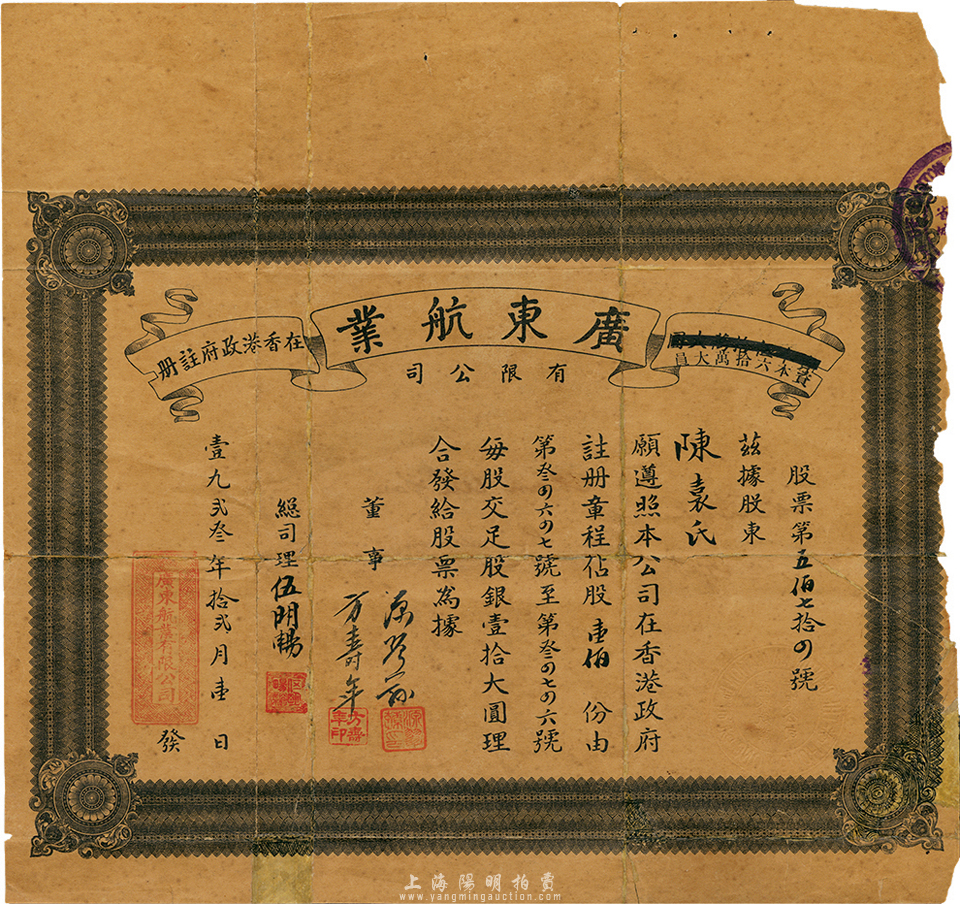 廣東航業
有限公司
資本六拾萬大員
在香港政府註册
股票第五佰七拾の號
茲據股東
陳袁氏
願遵照本公司在香港政府
註册章程佔股壹佰份由
第叄の六の七號至第叄の七の六號
每股交足股銀壹拾大圓理
合發給股票為據
董事
方壽年
方壽年印
總司理伍明暢
壹九弍叁年拾弍月壹日
發
廣東航業有限公司
上海陽明拍賣
www.yangmingauction.com